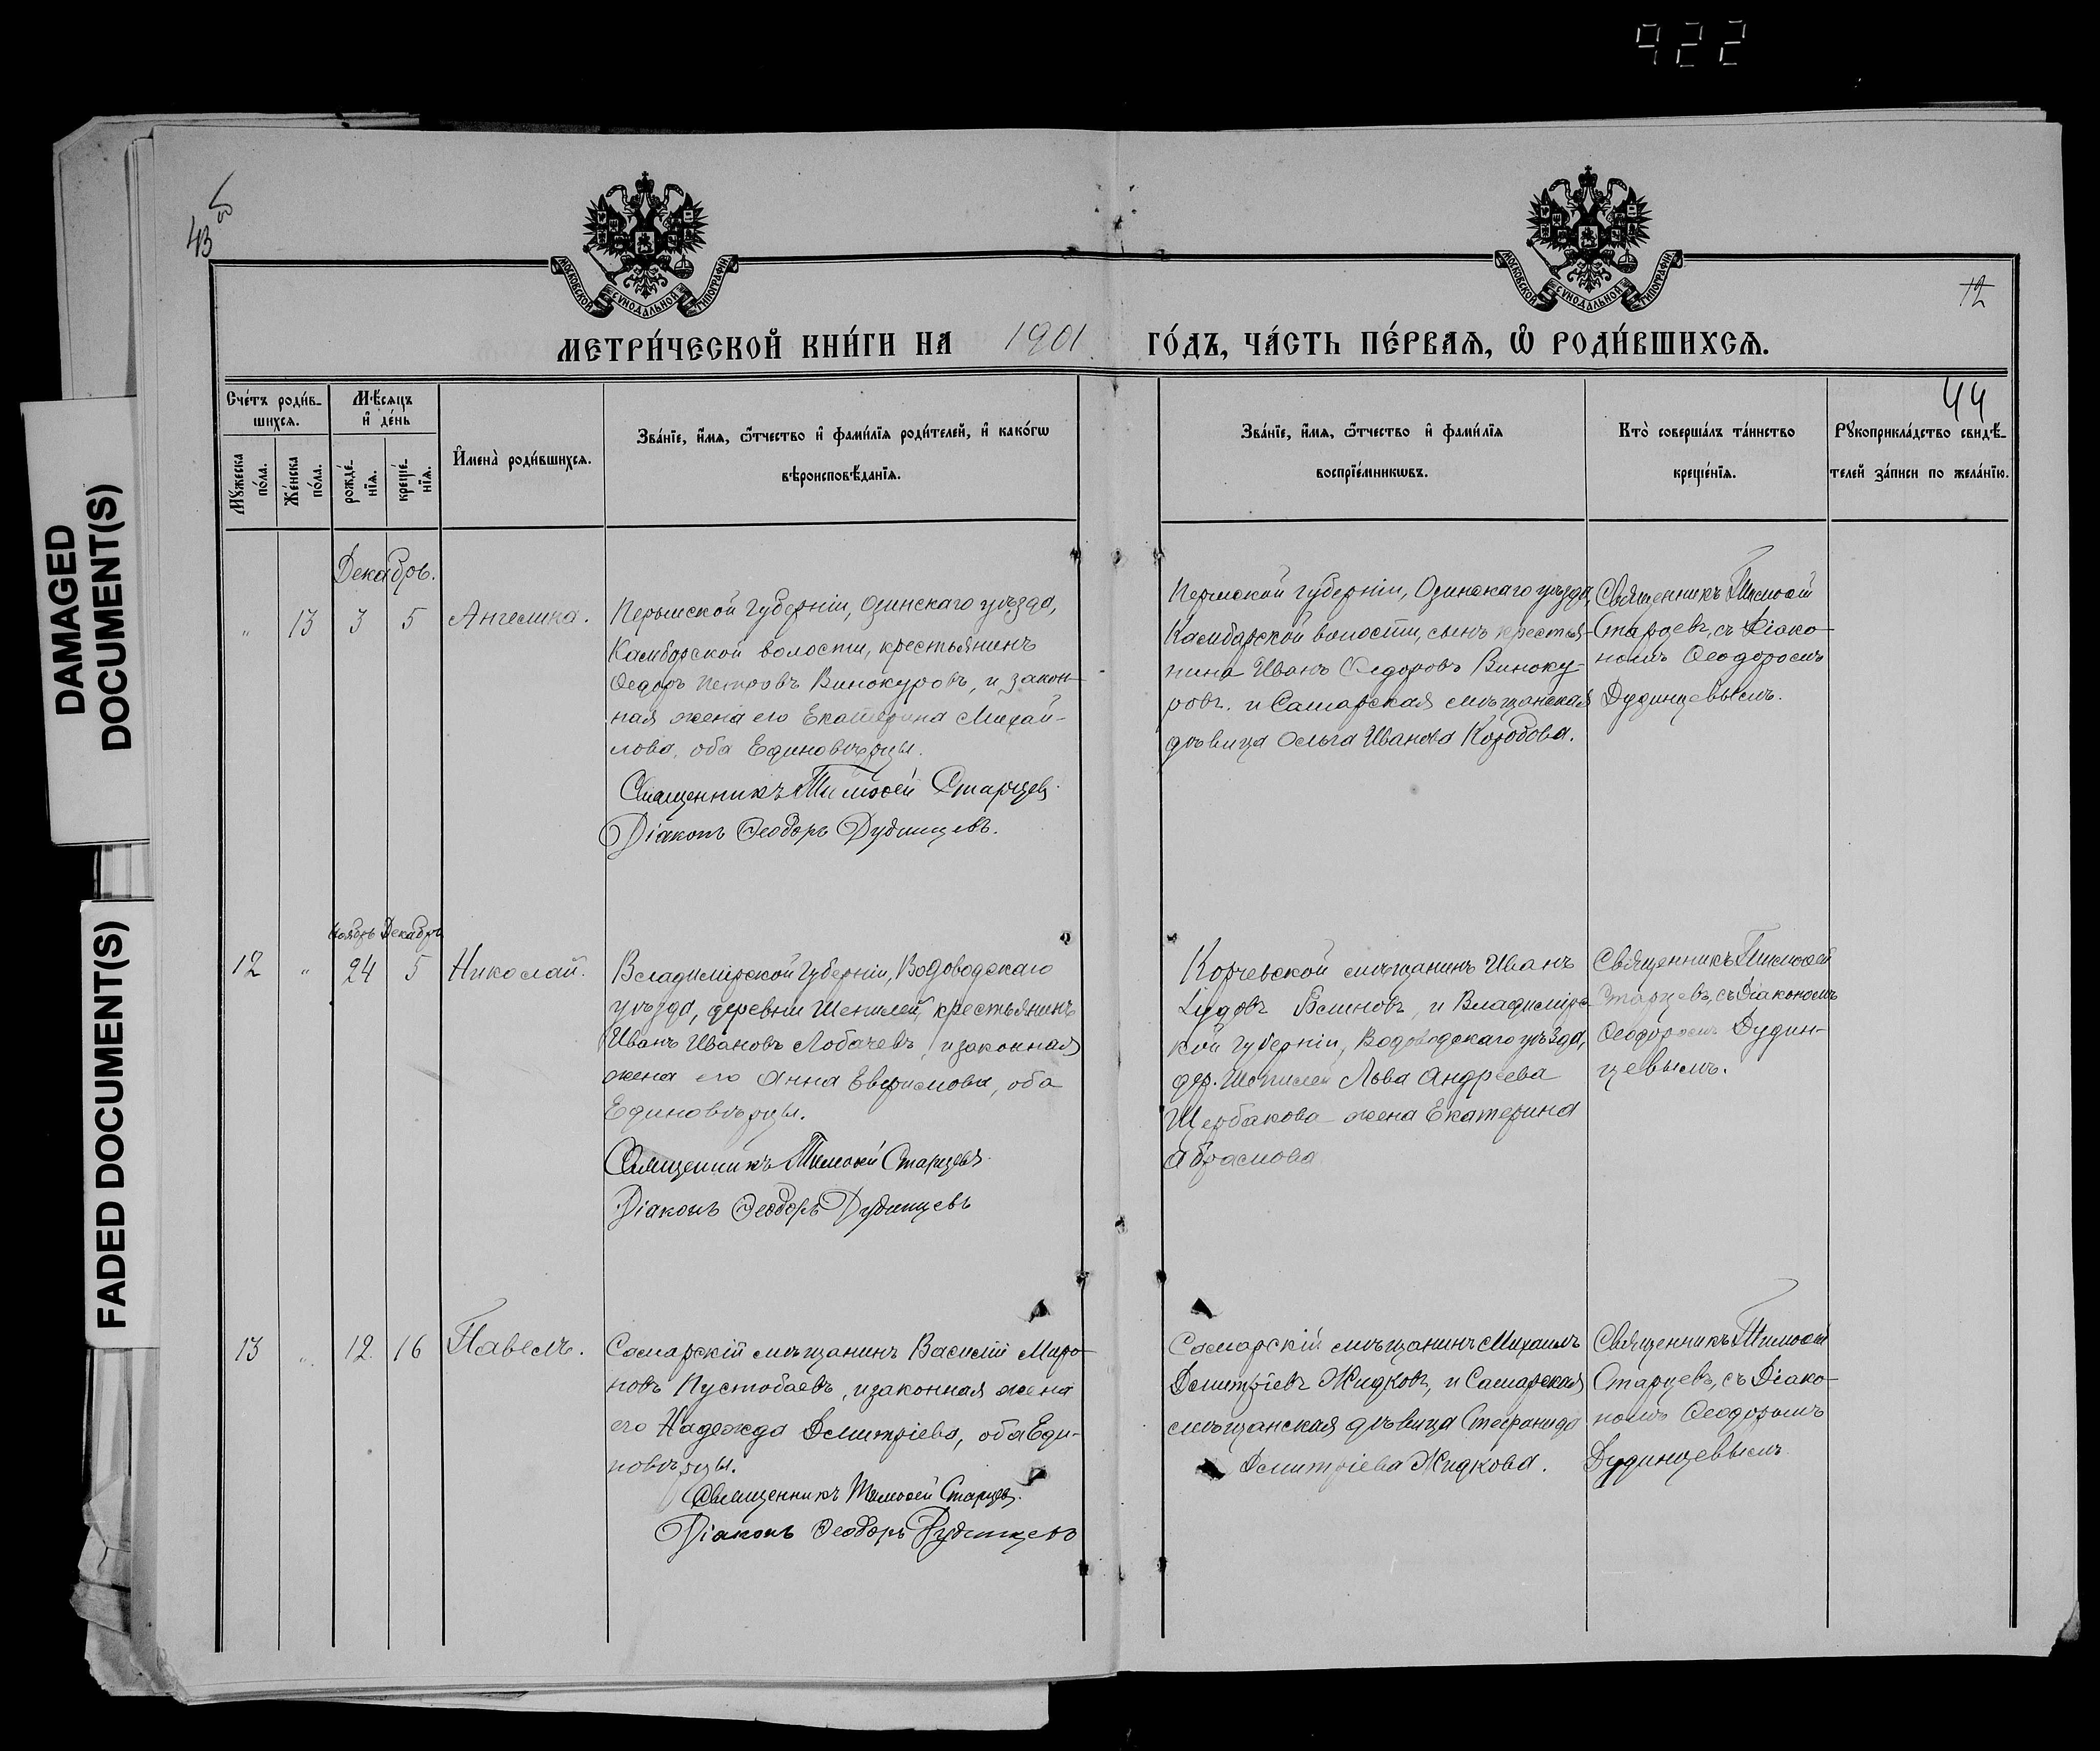 922
43 об
МОСКОВСКОЙ СУНОДАЛЬНОЙ ТИПОГРАФІИ
МОСКОВСКОЙ СУНОДАЛЬНОЙ ТИПОГРАФІИ
12
МЕТРИ́ЧЕСКОЙ КНИ́ГИ НА 1901 ГО́ДЪ, ЧА́СТЬ ПЕ́РВАѦ, Ѡ РОДИ́ВШИХСѦ.
44
Сче́тъ роди́в-
шихсѧ.
Мꙋ́жеска
по́ла.
Же́нска
по́ла.
Мѣ́сѧцъ
и҆ де́нь
рожде́-
нїѧ.
креще́-
нїѧ.
И҆мена̀ роди́вшихсѧ.
Зва́нїе, и҆́мѧ, ѻ҆́тчество и҆ фами́лїѧ роди́телей, и҆ како́гѡ
вѣроисповѣ́данїѧ.
Зва́нїе, и҆́мѧ, ѻ҆́тчество и҆ фами́лїѧ
воспрїе́мникѡвъ.
Кто̀ соверша́лъ та́инство
креще́нїѧ.
Рꙋкоприкла́дство свидѣ́-
телей за́писи по жела́нїю.
DAMAGED
DOCUMENT(S)
FADED DOCUMENT(S)
Декабрь.
" 13 3 5 Ангелина.
Пермской губерніи, Осинскаго уѣзда,
Камбарской волости, крестьянинъ
Ѳедоръ Петровъ Винокуровъ, и закон-
ная жена его Екатерина Михай-
лова, оба Единовѣрцы.
Священникъ Тимоѳей Старцевъ.
Діаконъ Ѳеодоръ Дудинцевъ.
Пермской губерніи, Осинскаго уѣзда,
Камбарской волости, сынъ крестья-
нина Иванъ Ѳедоровъ Виноку-
ровъ, и Самарская мѣщанская
дѣвица Ольга Иванова Коробова.
Священникъ Тимоѳей
Старцевъ, съ Діако-
номъ Ѳеодоромъ
Дудинцевымъ.
Ноябрь Декабрь
12 " 24 5 Николай.
Владимірской губерніи,
уѣзда, деревни крестьянинъ
Иванъ Ивановъ Лобачевъ, и законная
жена его Анна Евфимова, оба
Единовѣрцы.
Священникъ Тимоѳей Старцевъ.
Діаконъ Ѳеодоръ Дудинцевъ
Корчевской мѣщанинъ Иванъ
Блиновъ, и Владимірс-
кой губерніи, уѣзда,
дер. Льва Андреева
Щербакова жена Екатерина
Абрамова
Священникъ Тимоѳей
Старцевъ, съ Діакономъ
Ѳеодоромъ Дудин-
цевымъ.
13 " 12 16 Павелъ.
Самарскій мѣщанинъ Василій Миро-
новъ Пустобаевъ, и законная жена
его Надежда Димитріева, оба Еди-
новѣрцы.
Священникъ Тимоѳей Старцевъ.
Діаконъ Ѳеодоръ Дудинцевъ
Самарскій мѣщанинъ Михаилъ
Димитріевъ Жидковъ, и Самарская
мѣщанская дѣвица Стефанида
Димитріева Жидкова.
Священникъ Тимоѳей
Старцевъ, съ Діако-
номъ Ѳеодоромъ
Дудинцевымъ.